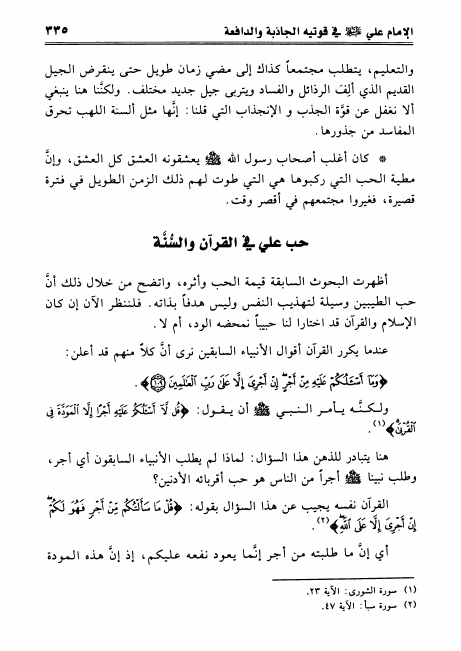 الإمام علي ﵇ في قوتيه الجاذبة والدافعة ٣٣٥
والتعليم، يتطلب مجتمعاً كذاك إلى مضي زمان طويل حتى ينقرض الجيل
القديم الذي ألِفَ الرذائل والفساد ويتربى جيل جديد مختلف. ولكنَّنا هنا ينبغي
ألا نغفل عن قوَّة الجذب والإنجذاب التي قلنا: إنَّها مثل ألسنة اللهب تحرق
المفاسد من جذورها.
* كان أغلب أصحاب رسول الله ﷺ يعشقونه العشق كل العشق، وإنَّ
مطية الحب التي ركبوها هي التي طوت لهم ذلك الزمن الطويل في فترة
قصيرة، فغيروا مجتمعهم في أقصر وقت.
حب علي في القرآن والسُّنَّة
أظهرت البحوث السابقة قيمة الحب وأثره، واتضح من خلال ذلك أنَّ
حب الطيبين وسيلة لتهذيب النفس وليس هدفاً بذاته. فلننظر الآن إن كان
الإسلام والقرآن قد اختارا لنا حبيباً نمحضه الود، أم لا.
عندما يكرر القرآن أقوال الأنبياء السابقين نرى أنَّ كلاً منهم قد أعلن:
﴿وَمَآ أَسْـَٔلُكُمْ عَلَيْهِ مِنْ أَجْرٍۖ إِنْ أَجْرِىَ إِلَّا عَلَىٰ رَبِّ ٱلْعَـٰلَمِينَ ١٠٩﴾.
ولكنَّه يأمر النبي ﷺ أن يقول: ﴿قُل لَّآ أَسْـَٔلُكُمْ عَلَيْهِ أَجْرًا إِلَّا ٱلْمَوَدَّةَ فِى
ٱلْقُرْبَىٰۗ﴾(١).
هنا يتبادر للذهن هذا السؤال: لماذا لم يطلب الأنبياء السابقون أي أجر،
وطلب نبينا ﷺ أجراً من الناس هو حب أقربائه الأدنين؟
القرآن نفسه يجيب عن هذا السؤال بقوله: ﴿قُلْ مَا سَأَلْتُكُم مِّنْ أَجْرٍ فَهُوَ لَكُمْۖ
إِنْ أَجْرِىَ إِلَّا عَلَى ٱللَّهِۖ﴾(٢).
أي إنَّ ما طلبته من أجر إنَّما يعود نفعه عليكم، إذ إنَّ هذه المودة
(١) سورة الشورى: الآية ٢٣.
(٢) سورة سبأ: الآية ٤٧.